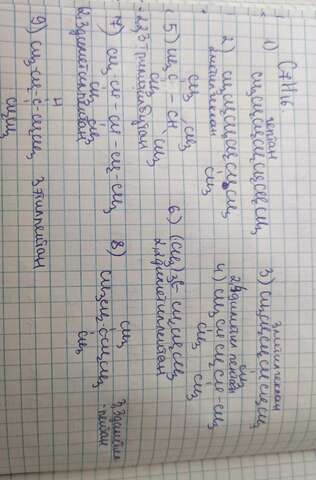 C7H16.
гептан
1) CH3CH2CH2CH2CH2CH2CH3
2) CH3CH2CH2CH2CHCH3
CH3
2метилгексан
3метилгексан
3) CH3CH2CH2CHCH2CH3
2,4диметил пентан
CH3
4) CH3CHCH2CH-CH3
CH3
CH3
5) CH3C - CH
CH3
CH3
CH3
2,2,3триметилбутан
6) (CH3)3C-CH2CH2CH3
2,2диметилпентан
7) CH3-CH-CH-CH2-CH3
CH3 CH3
2,3диметилпентан
CH3
8) CH3CH2-C-CH2CH3
CH3
3,3диметил
-пентан
H
9) CH3-CH2-C-CH2CH3
CH2CH3
3этилпентан